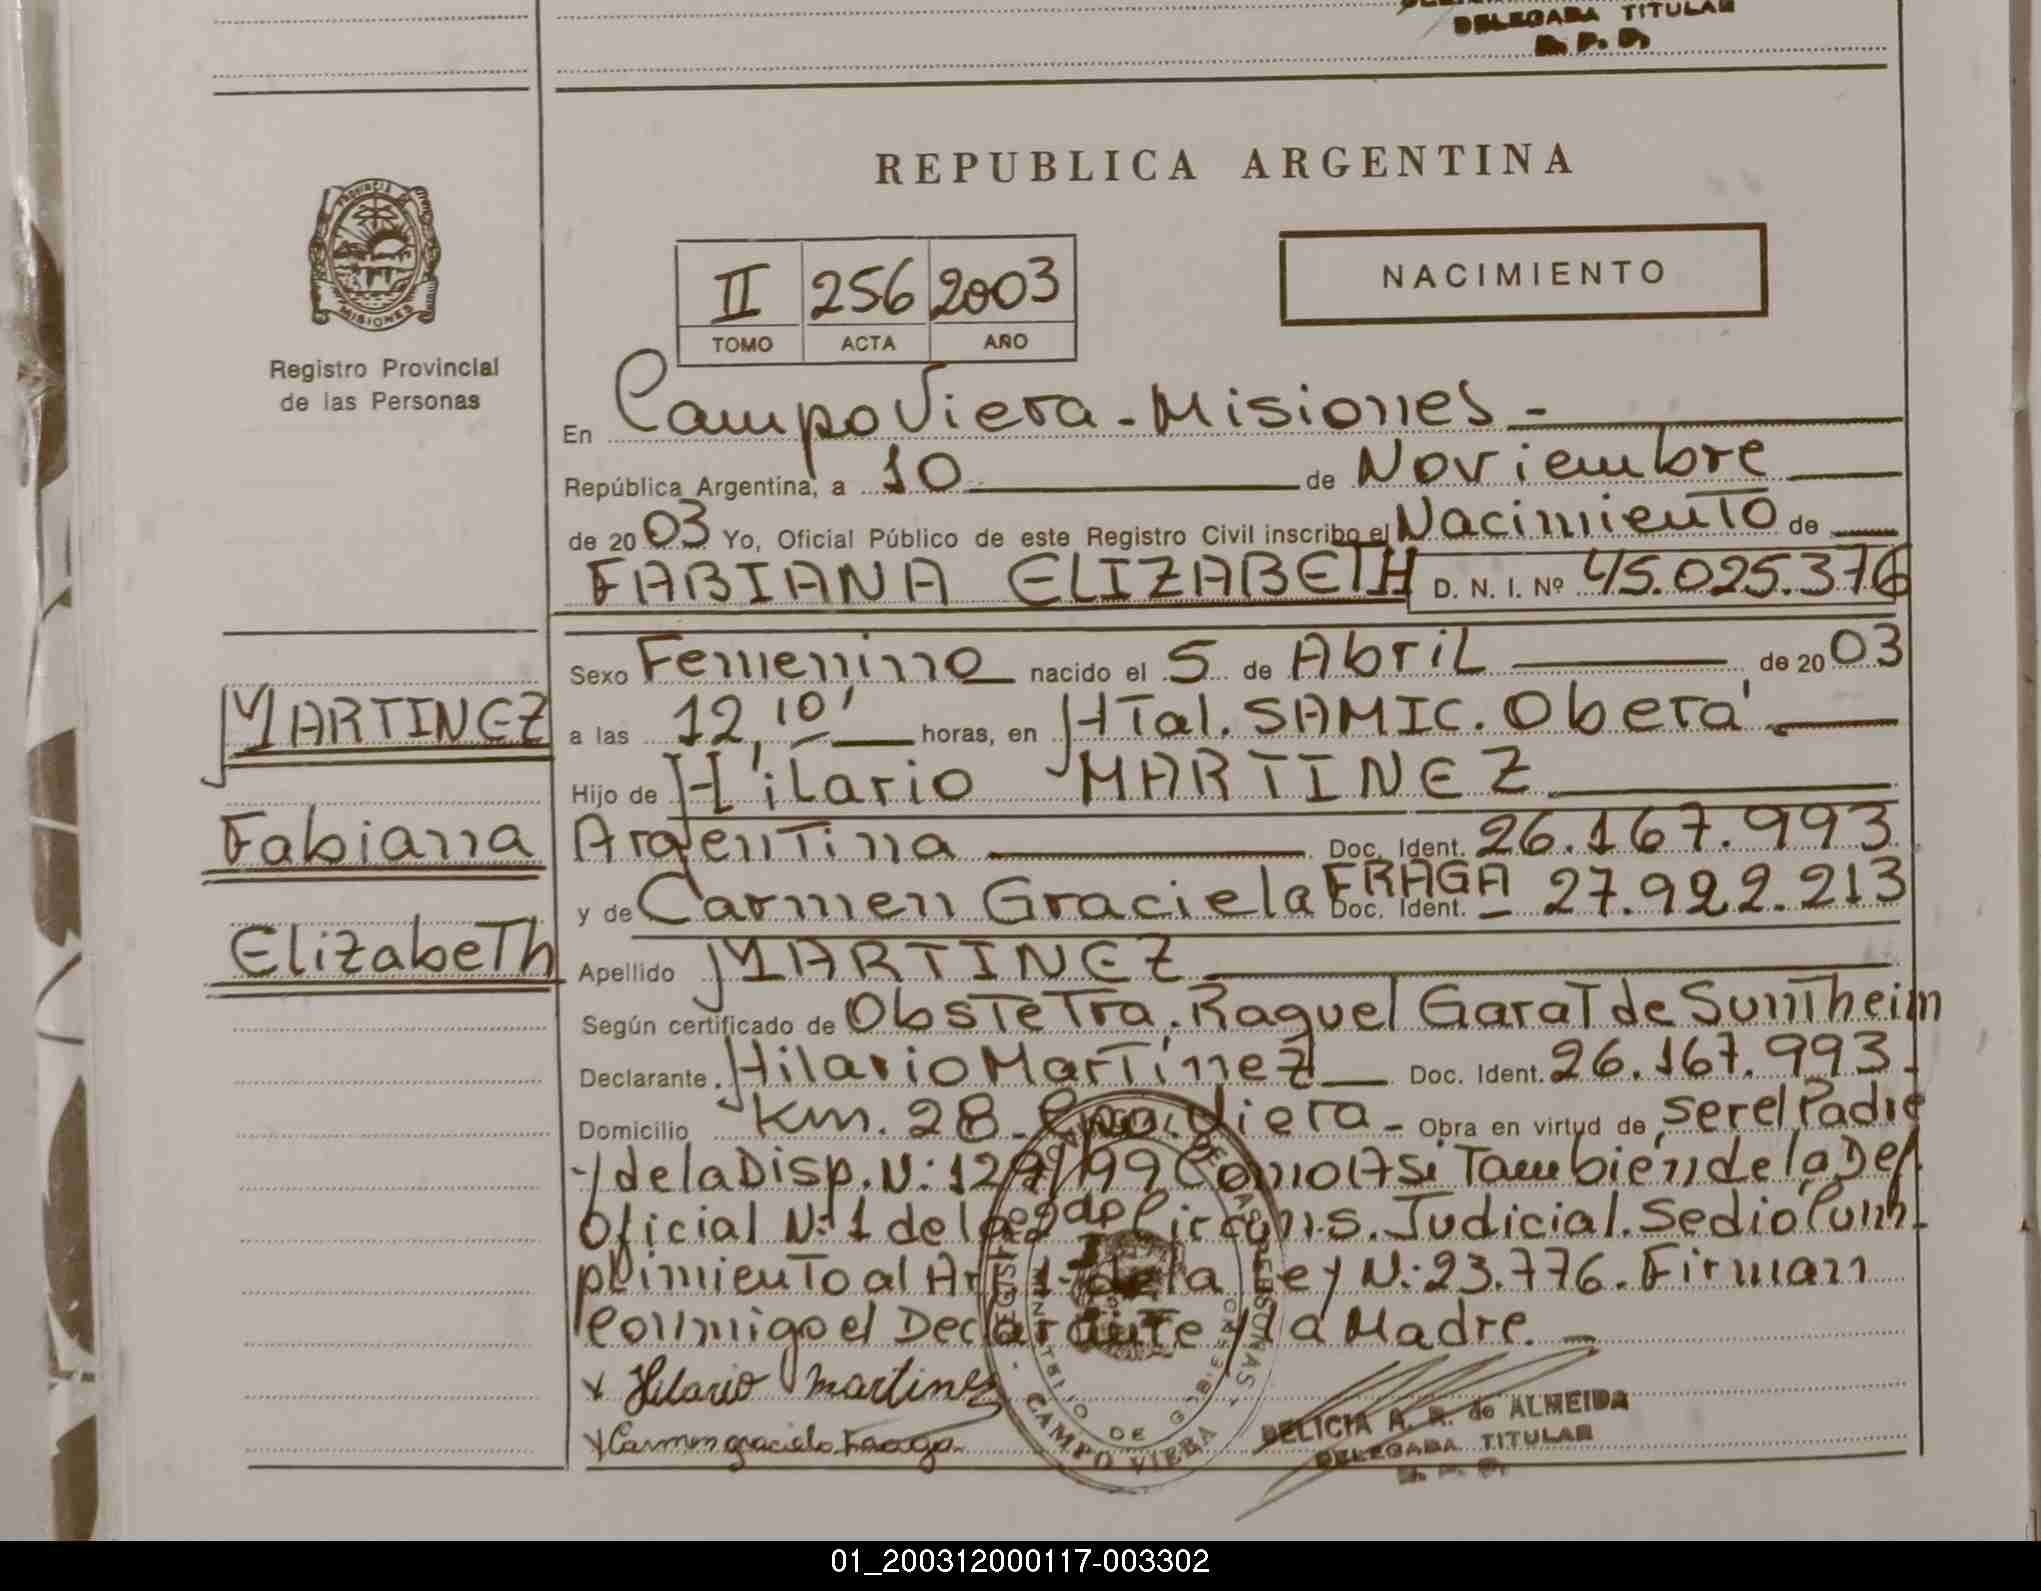 DELEGADA TITULAR
R. P. P.
REPUBLICA ARGENTINA
PROVINCIA DE
MISIONES
Registro Provincial
de las Personas
II 256 2003
TOMO ACTA AÑO
NACIMIENTO
En Campo Viera - Misiones -
República Argentina, a 10 de Noviembre
de 2003 Yo, Oficial Público de este Registro Civil inscribo el Nacimiento de
FABIANA ELIZABETH D. N. I. Nº 45.025.376
Sexo Femenino nacido el 5 de Abril de 2003
MARTINEZ
a las 12,10' horas, en HTal. SAMIC. Oberá
Hijo de Hilario MARTINEZ
Fabiana
Argentina Doc. Ident. 26.167.993
y de Carmen Graciela FRAGA Doc. Ident. - 27.922.213
Elizabeth
Apellido MARTINEZ
Según certificado de Obstetra. Raquel Garat de Suntheim
Declarante Hilario Martínez Doc. Ident. 26.167.993.
Domicilio Km. 28 - Cpo. Viera - Obra en virtud de ser el Padre
y de la Disp. N: 129/99 Como Asi También de la Def.
Oficial N: 1 de la Circuns. Judicial. Se dio Cum-
plimiento al Art 1 de la Ley N: 23.776. Firman
Conmigo el Declarante y la Madre. -
x Hilario Martinez
x Carmen graciela Fraga
CAMPO VIERA
DELICIA A. R. de ALMEIDA
DELEGADA TITULAR
R. P. P.
01_200312000117-003302